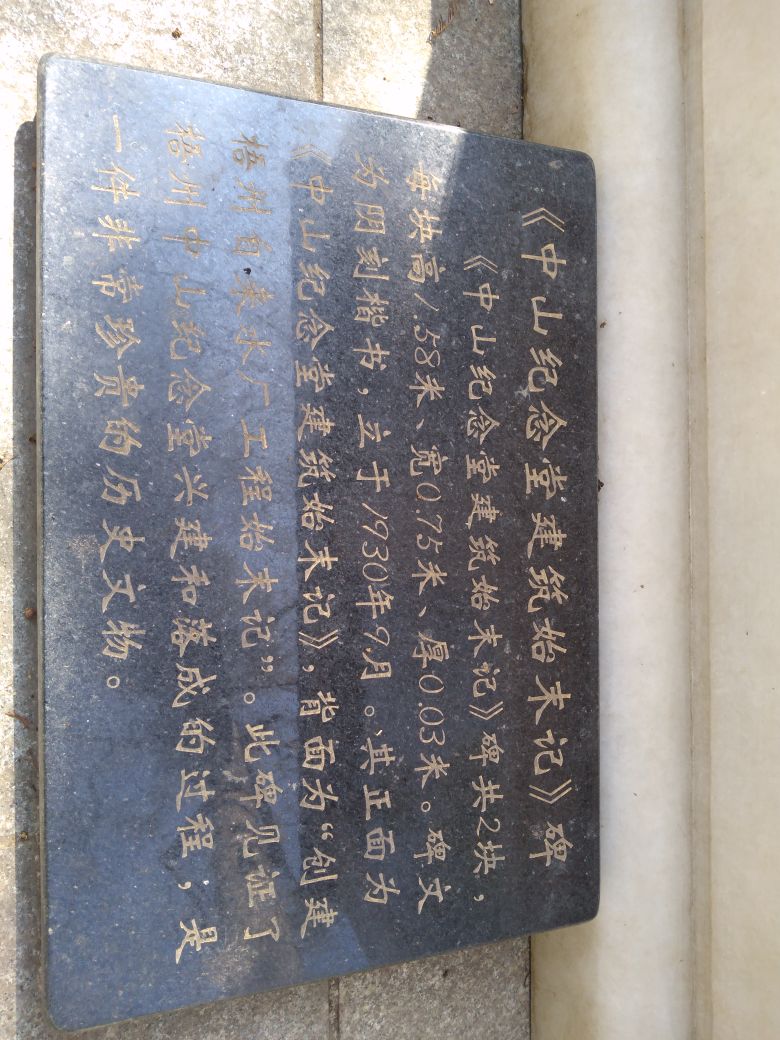 《中山纪念堂建筑始末记》碑
《中山纪念堂建筑始末记》碑共2块，
每块高1.58米、宽0.75米、厚0.03米。碑文
为阴刻楷书，立于1930年9月。其正面为
《中山纪念堂建筑始末记》，背面为“创建
梧州自来水厂工程始末记”。此碑见证了
梧州中山纪念堂兴建和落成的过程，是
一件非常珍贵的历史文物。